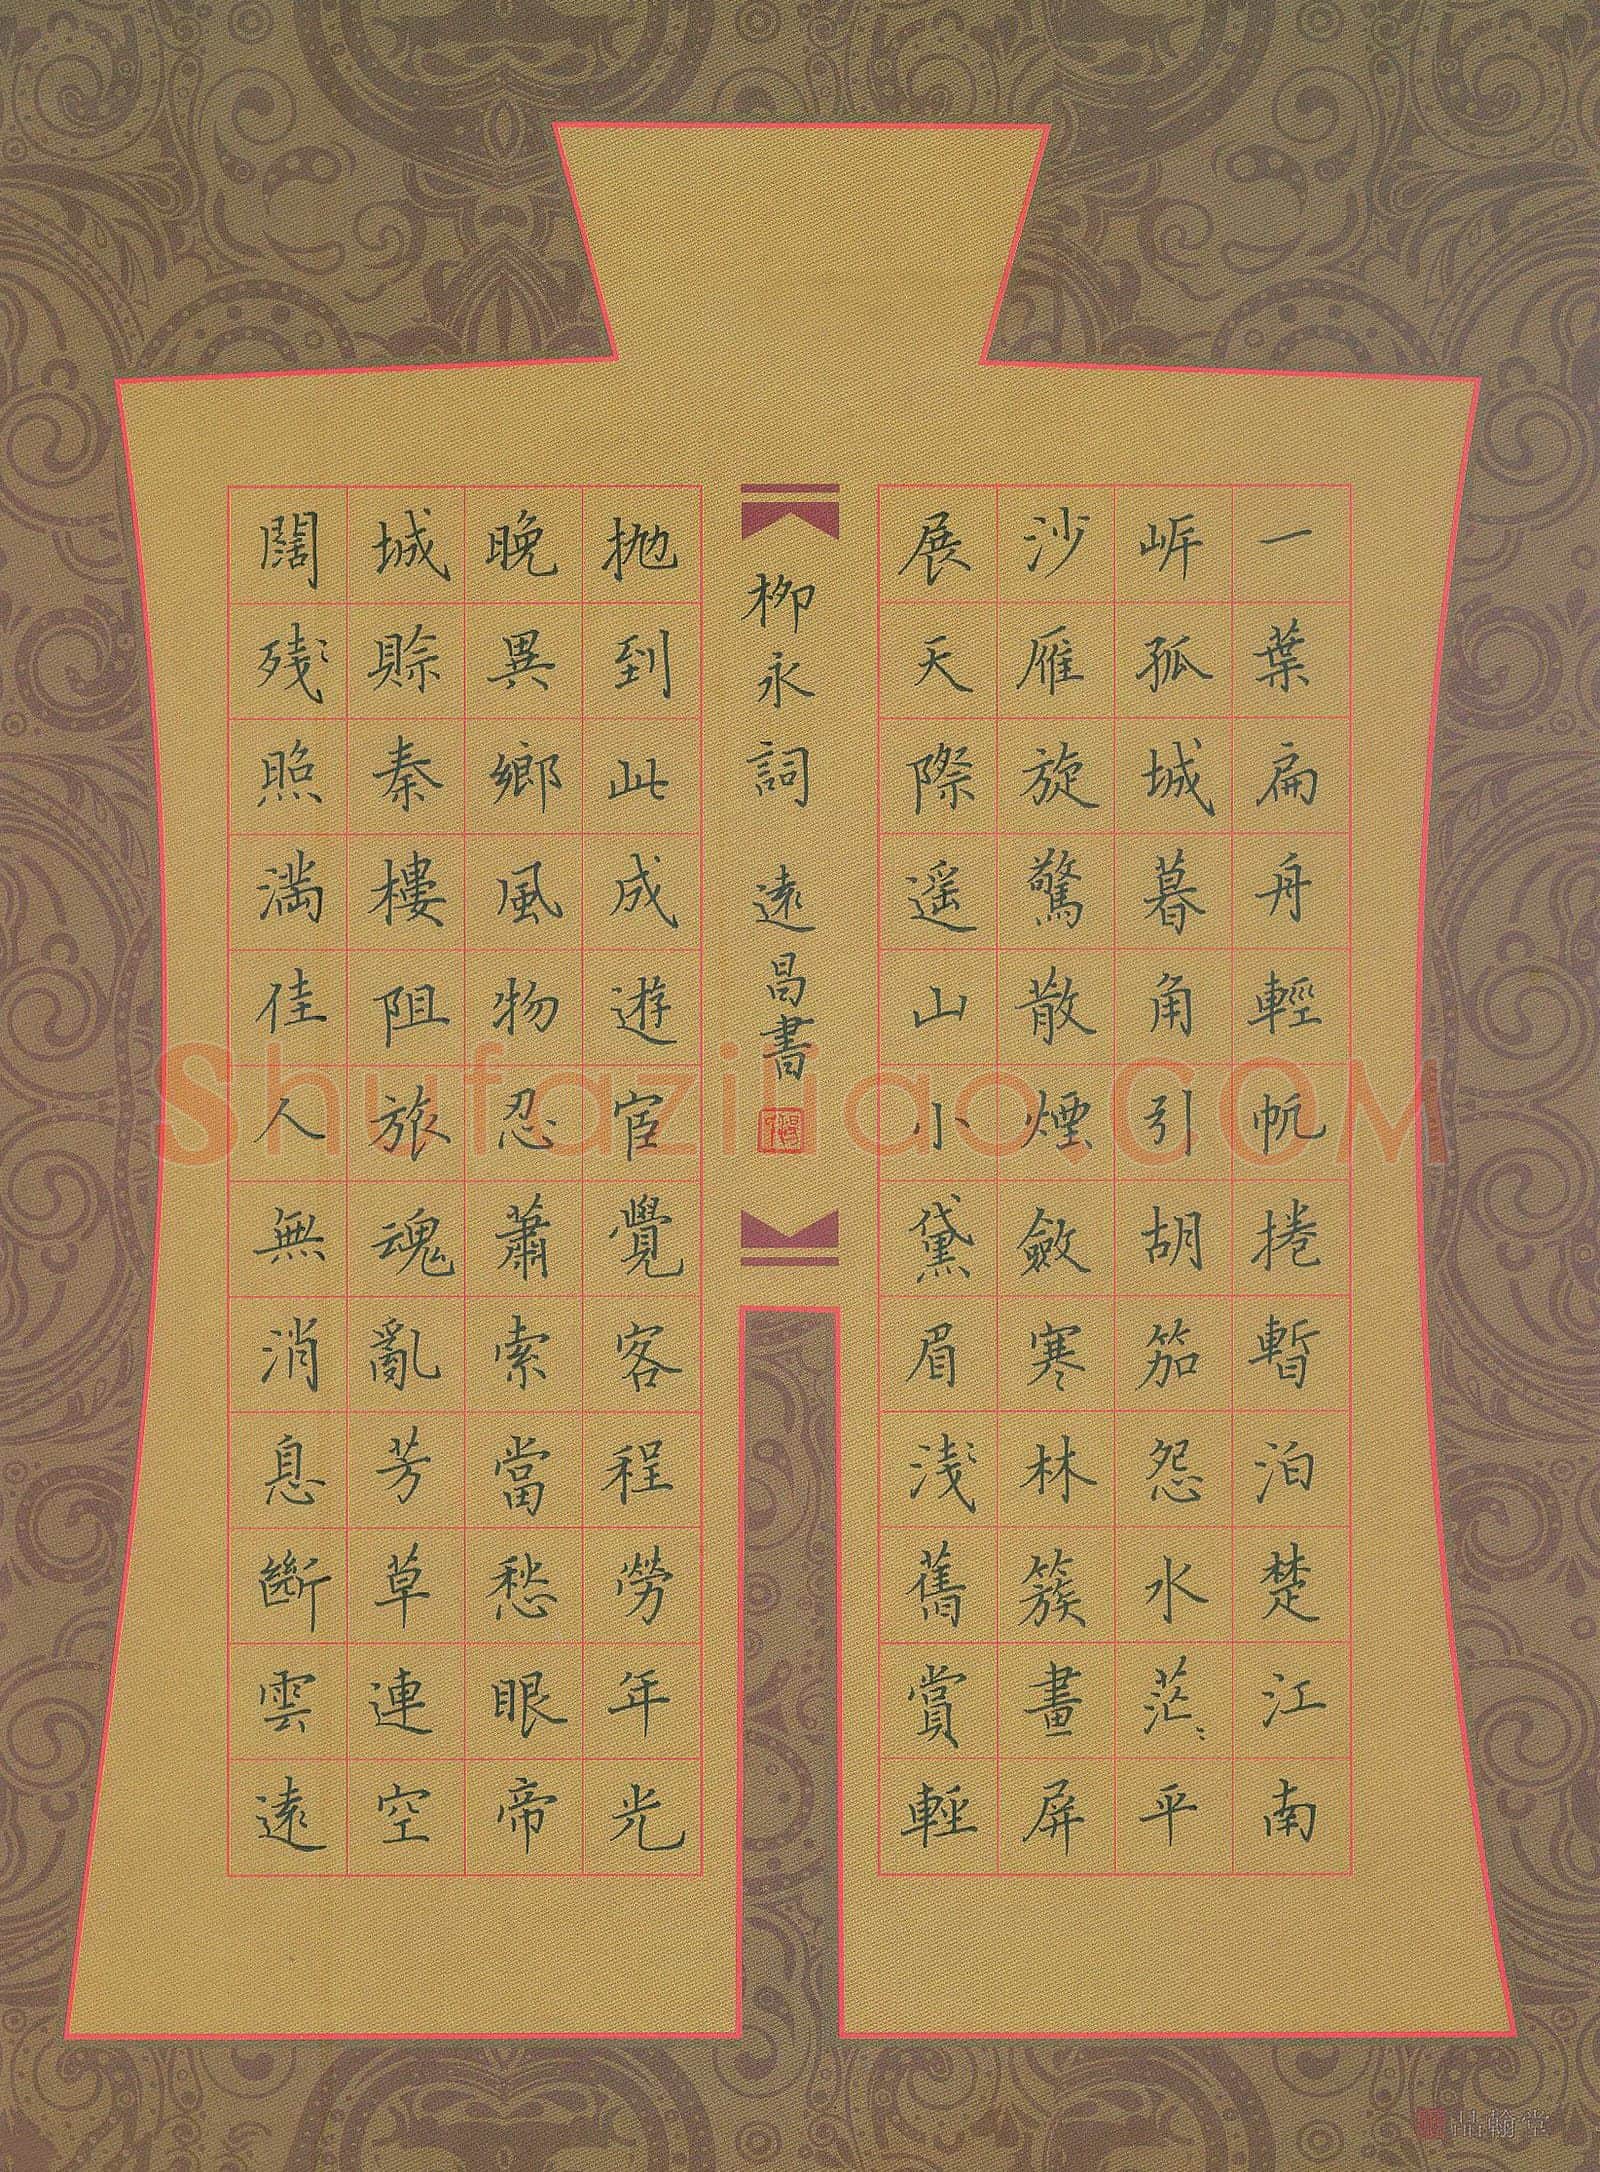 一葉扁舟輕帆捲暫泊楚江南
岸孤城暮角引胡笳怨水茫〻平
沙雁旋驚散煙斂寒林簇畫屏
展天際遥山小黛眉淺舊賞輕
柳永詞 遠昌書
抛到此成遊宦覺客程勞年光
晚異鄉風物忍蕭索當愁眼帝
城賒秦樓阻旅魂亂芳草連空
闊残照満佳人無消息斷雲遠
Shufaziliao.COM
品翰堂